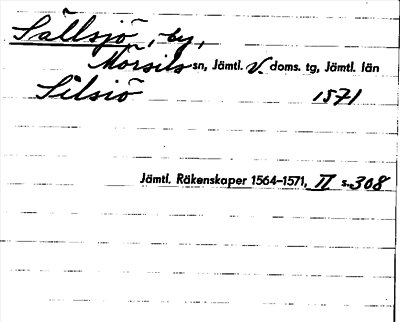 Sällsjö, by,
Mörsils sn, Jämtl. V. doms. tg, Jämtl. län
Silsiö 1571
Jämtl. Räkenskaper 1564–1571, II s. 308